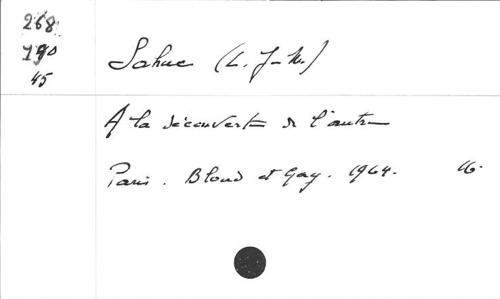 268
190
45
Sahuc (L. J-M.)
A la découverte de l'autre
Paris. Bloud et Gay. 1964. 16.